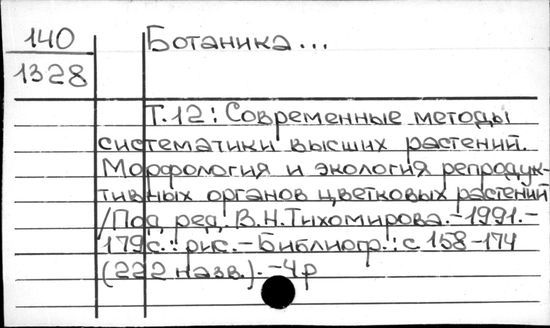 140
1328
Ботаника...
Т.12: Современные методы
систематики высших растений.
Морфология и экология репродук-
тивных органов цветковых растений
/Под ред. В.Н.Тихомирова.-1991.-
179с.: рис.-Библиогр.: с 158-174
(222 назв.).-4р